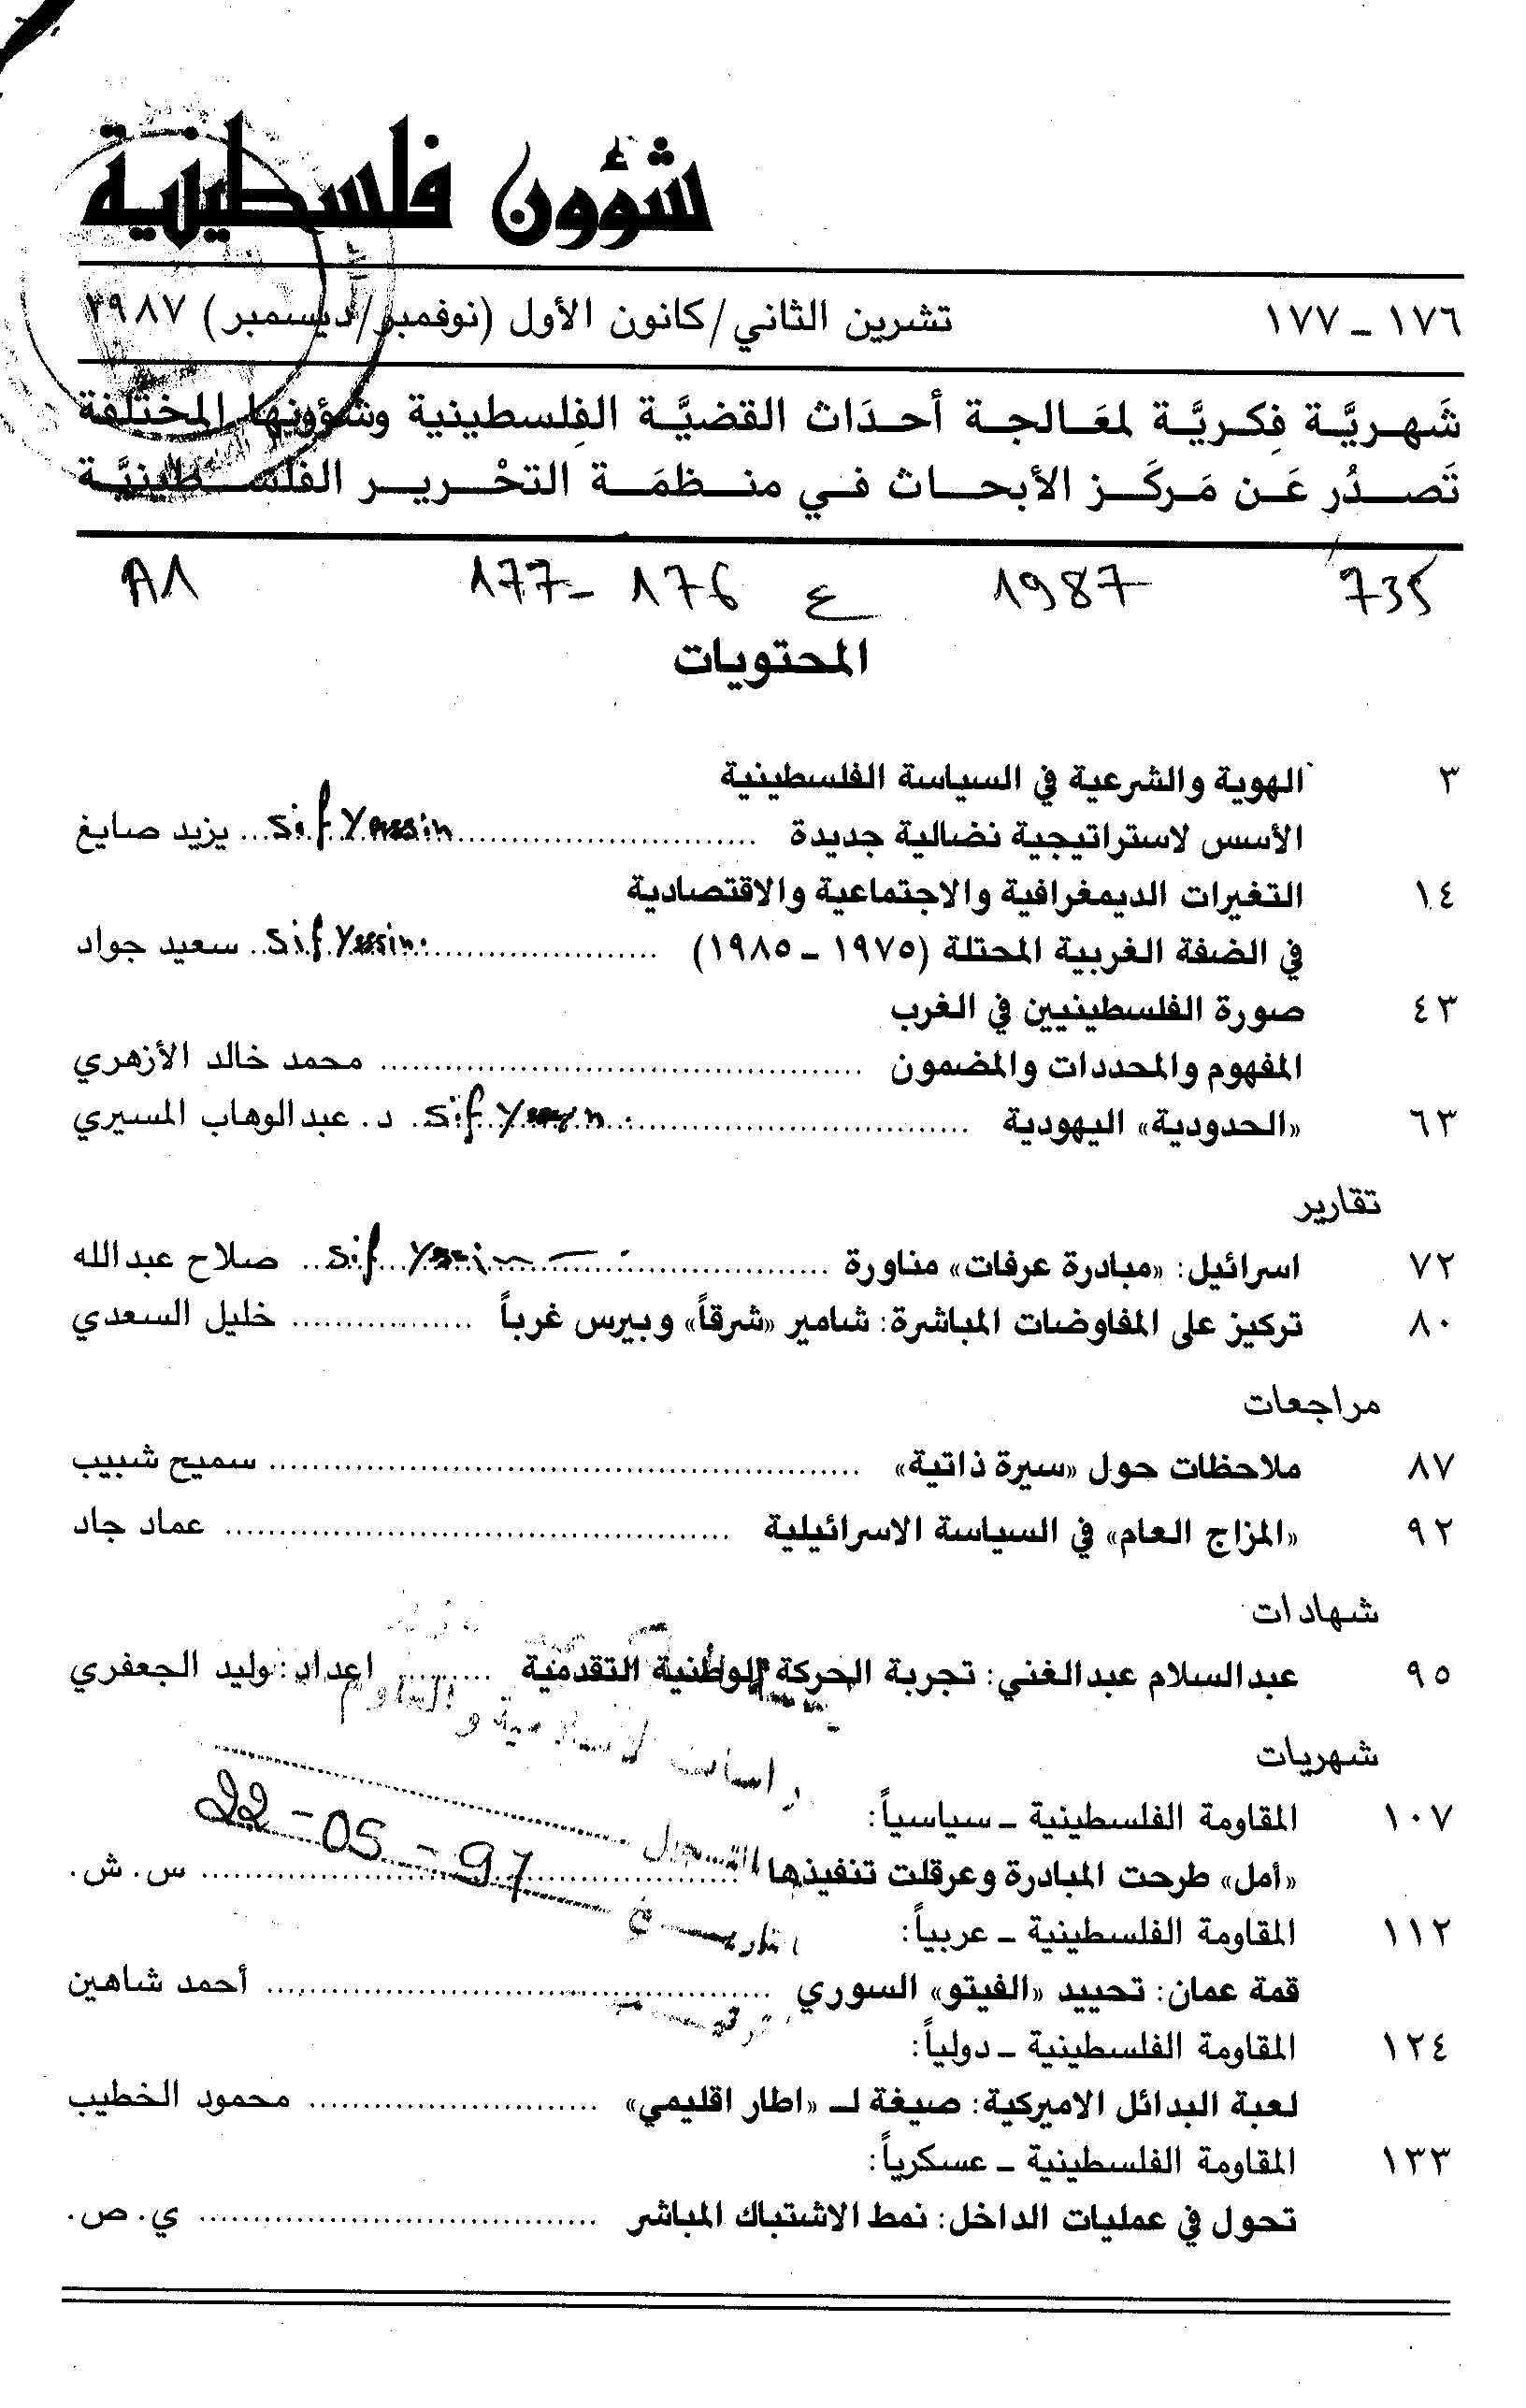 شؤون فلسطينية
١٧٦ – ١٧٧ تشرين الثاني/كانون الأول (نوفمبر/ديسمبر) ١٩٨٧
شَهـريَّـة فِكـريَّـة لمعَـالجـة أحـدَاث القضيَّـة الفِلسطينية وشؤونها المختلفة
تَصـدُر عَـن مَـركَـز الأبحـاث فـي منـظمَـة التحْـريـر الفلسـطينيَّـة
735 1987 ع 176 -177 A1
المحتويات
٣ الهوية والشرعية في السياسة الفلسطينية
الأسس لاستراتيجية نضالية جديدة ........ Sif Yassin ... يزيد صايغ
١٤ التغيرات الديمغرافية والاجتماعية والاقتصادية
في الضفة الغربية المحتلة (١٩٧٥ – ١٩٨٥) ........ Sif Yassin .. سعيد جواد
٤٣ صورة الفلسطينيين في الغرب
المفهوم والمحددات والمضمون ........ محمد خالد الأزهري
٦٣ «الحدودية» اليهودية ........ Sif . د. عبدالوهاب المسيري
تقارير
٧٢ اسرائيل: «مبادرة عرفات» مناورة ........ Sif ... صلاح عبدالله
٨٠ تركيز على المفاوضات المباشرة: شامير «شرقاً» وبيرس غرباً ........ خليل السعدي
مراجعات
٨٧ ملاحظات حول «سيرة ذاتية» ........ سميح شبيب
٩٢ «المزاج العام» في السياسة الاسرائيلية ........ عماد جاد
شهادات
٩٥ عبدالسلام عبدالغني: تجربة الحركة الوطنية التقدمية ........ اعداد: وليد الجعفري
شهريات
١٠٧ المقاومة الفلسطينية – سياسياً:
«أمل» طرحت المبادرة وعرقلت تنفيذها ........ س. ش.
التسجيل
22-05-97
١١٢ المقاومة الفلسطينية – عربياً:
قمة عمان: تحييد «الفيتو» السوري ........ أحمد شاهين
١٢٤ المقاومة الفلسطينية – دولياً:
لعبة البدائل الاميركية: صيغة لـ «اطار اقليمي» ........ محمود الخطيب
١٣٣ المقاومة الفلسطينية – عسكرياً:
تحول في عمليات الداخل: نمط الاشتباك المباشر ........ ي. ص.